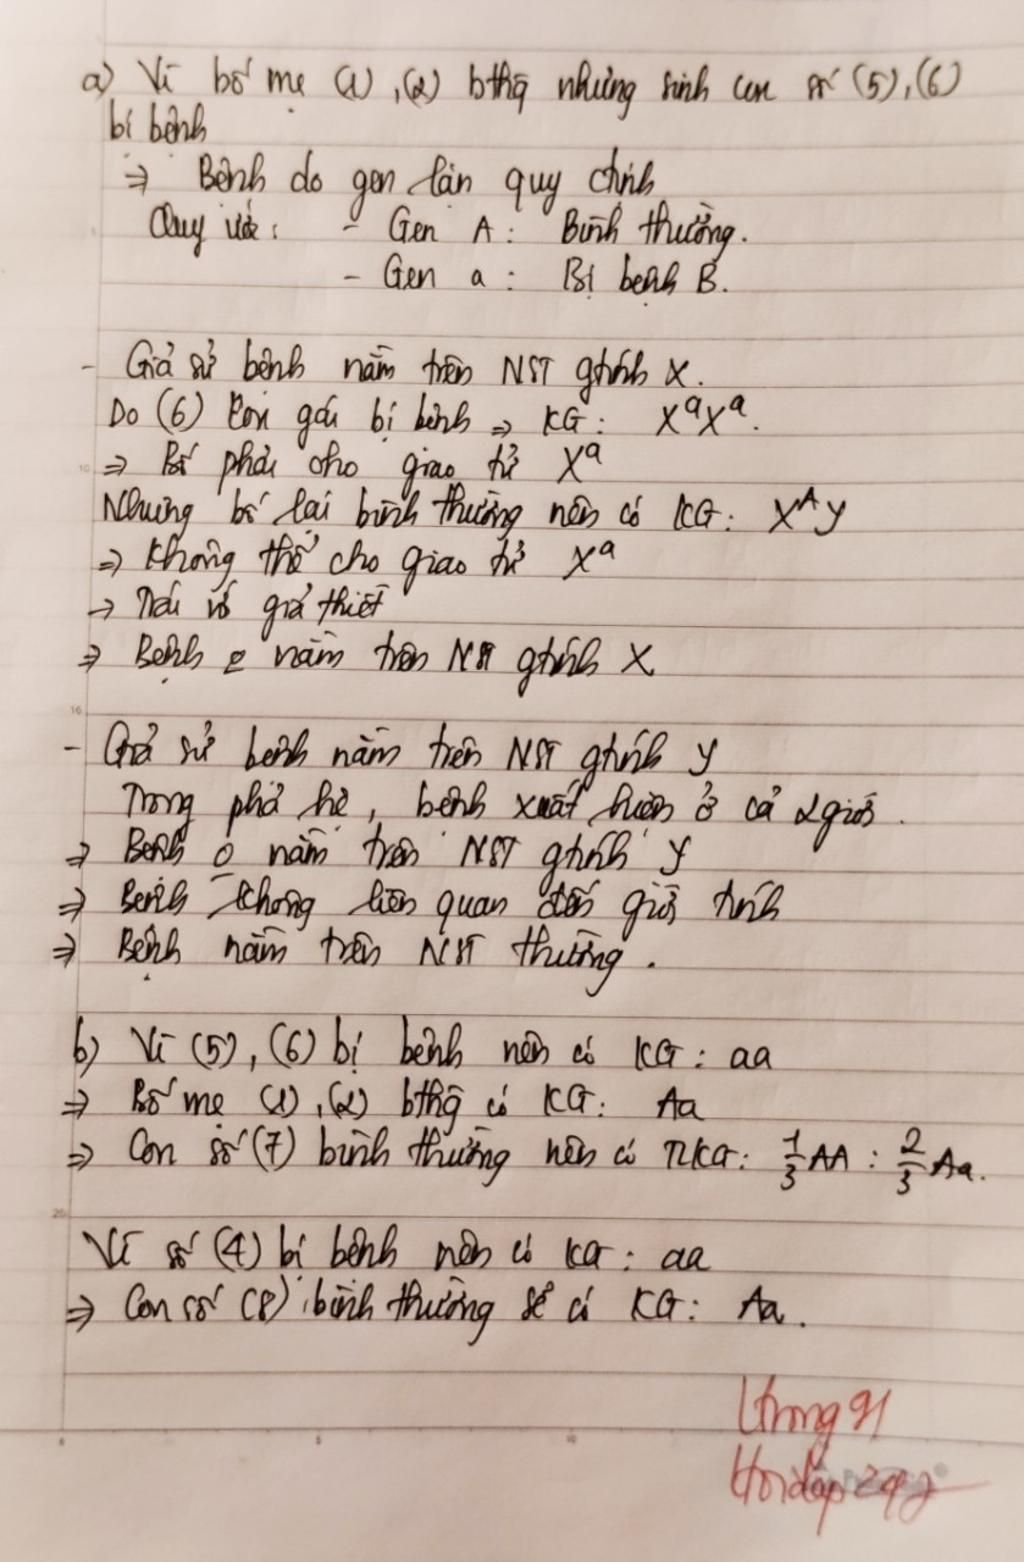 a) Vì bố mẹ (1), (2) bthg nhưng sinh con số (5), (6)
bị bệnh
⇒ Bệnh do gen lặn quy định
Quy ước: - Gen A: Bình thường.
- Gen a: Bị bệnh B.
- Giả sử bệnh nằm trên NST gtính X.
Do (6) con gái bị bệnh ⇒ KG: XᵃXᵃ.
⇒ Bố phải cho giao tử Xᵃ
Nhưng bố lại bình thường nên có KG: XᴬY
⇒ Không thể cho giao tử Xᵃ
→ Trái vs giả thiết
⇒ Bệnh o nằm trên NST gtính X
- Giả sử bệnh nằm trên NST gtính Y
Trong phả hệ, bệnh xuất hiện ở cả 2 giới.
⇒ Bệnh o nằm trên NST gtính Y
⇒ Bệnh không liên quan đến giới tính
⇒ Bệnh nằm trên NST thường.
b) Vì (5), (6) bị bệnh nên có KG: aa
⇒ Bố mẹ (1), (2) bthg có KG: Aa
⇒ Con số (7) bình thường nên có TLKG: 1/3 AA : 2/3 Aa.
Vì số (4) bị bệnh nên có KG: aa
⇒ Con số (8) bình thường sẽ có KG: Aa.
Hoidap247